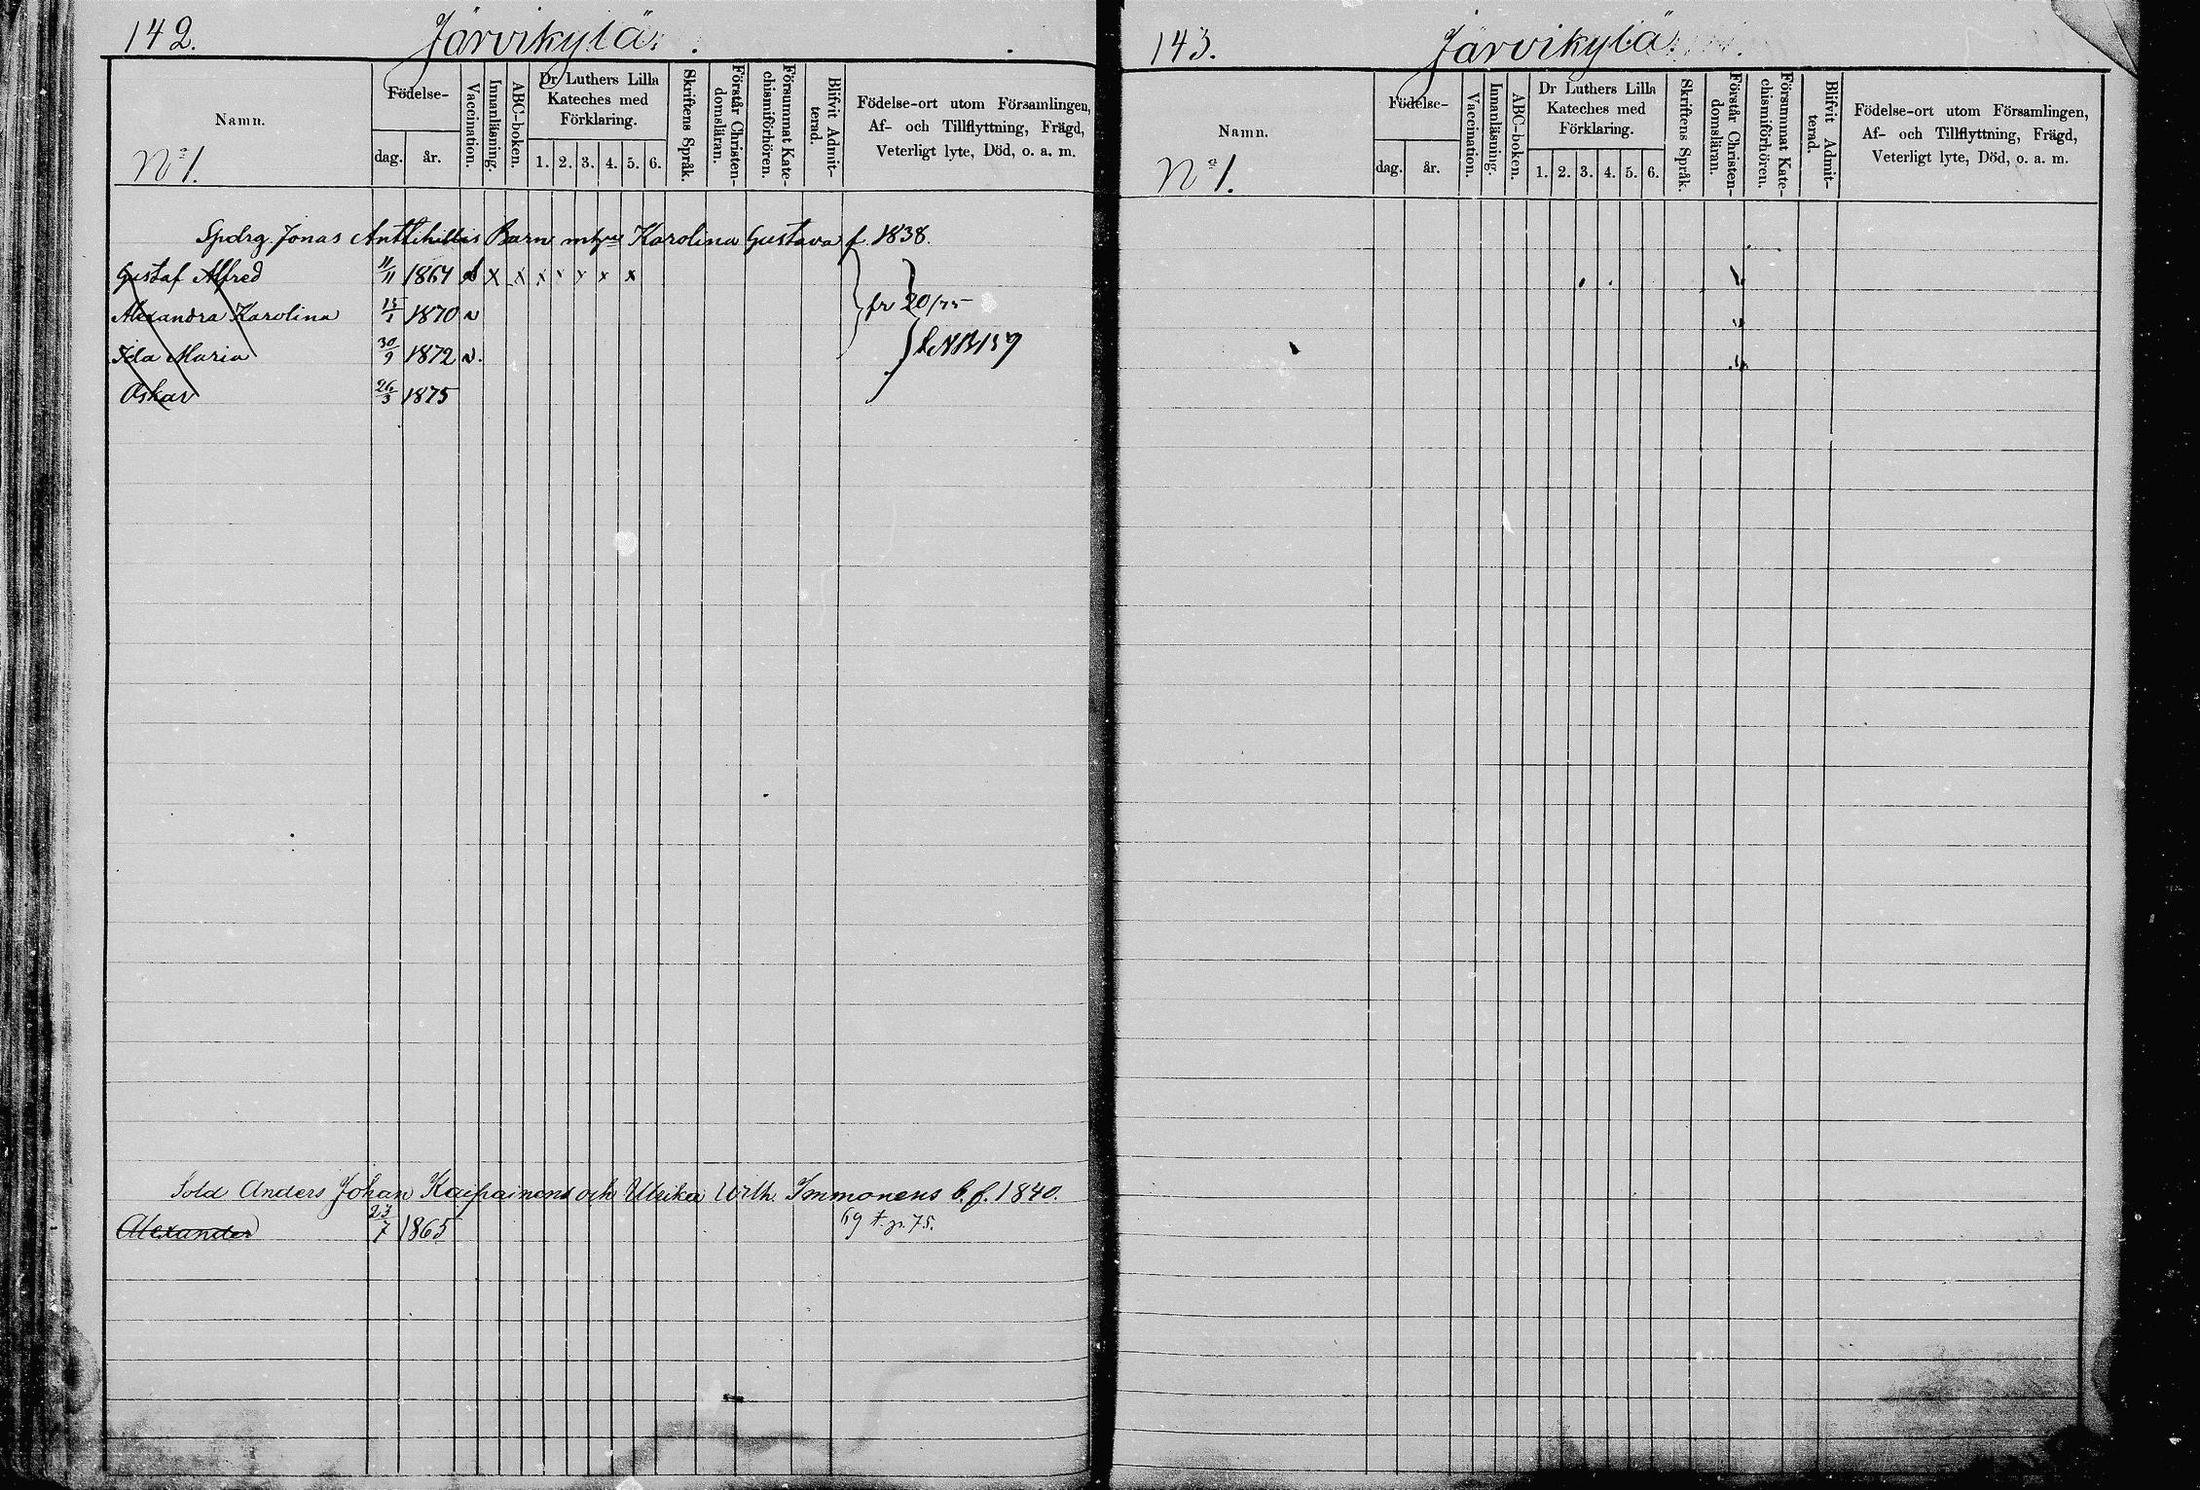 142.
Järvikylä.
Namn.
Nº 1.
Födelse-
dag.
år.
Vaccination.
Innanläsning.
ABC-boken.
Dr Luthers Lilla
Kateches med
Förklaring.
1. 2. 3. 4. 5. 6.
Skriftens Språk.
Förstår Christen-
domsläran.
Försummat Kate-
chismiförhören.
Blifvit Admit-
terad.
Födelse-ort utom Församlingen,
Af- och Tillflyttning, Frägd,
Veterligt lyte, Död, o. a. m.
Jonas Barn Karolina Gustava f. 1838.
Gustaf Alfred 11/11 1867 x x x x x x x
Alexandra Karolina 1870 v
fr 20/75
Ida Maria 30/9 1872 v.
Oskar 26/3 1875
Sold Anders Johan Kaipainens och Ulrika Wilh. Immonens b. f. 1840.
Alexander 23/7 1865
143.
Järvikylä.
Namn.
Nº 1.
Födelse-
dag.
år.
Vaccination.
Innanläsning.
ABC-boken.
Dr Luthers Lilla
Kateches med
Förklaring.
1. 2. 3. 4. 5. 6.
Skriftens Språk.
Förstår Christen-
domsläran.
Försummat Kate-
chismiförhören.
Blifvit Admit-
terad.
Födelse-ort utom Församlingen,
Af- och Tillflyttning, Frägd,
Veterligt lyte, Död, o. a. m.